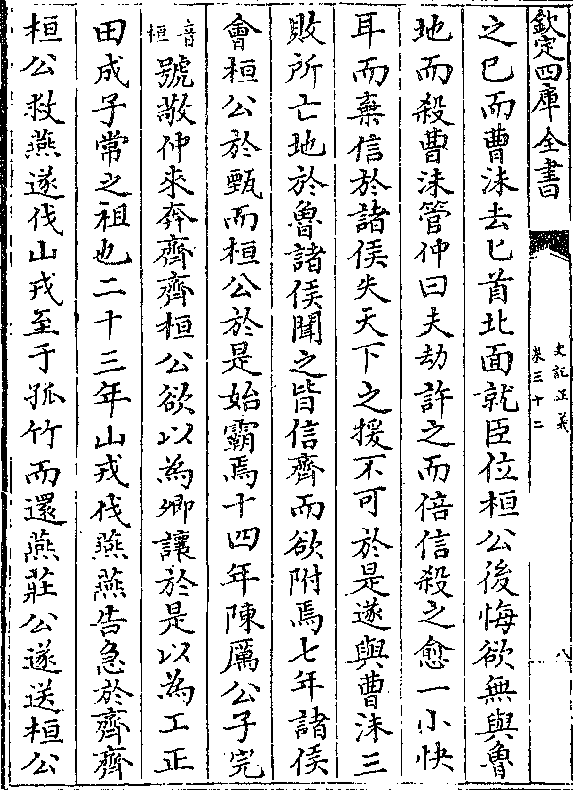 欽定四庫全書
史記正義
卷三十二
八
之已而曹沬去匕首北面就臣位桓公後悔欲無與魯
地而殺曹沬管仲曰夫劫許之而倍信殺之愈一小快
耳而棄信於諸侯失天下之援不可於是遂與曹沬三
敗所亡地於魯諸侯聞之皆信齊而欲附焉七年諸侯
會桓公於甄而桓公於是始霸焉十四年陳厲公子完
音桓
號敬仲来奔齊齊桓公欲以為卿讓於是以為工正
田成子常之祖也二十三年山戎伐燕燕告急於齊齊
桓公救燕遂伐山戎至于孤竹而還燕莊公遂送桓公